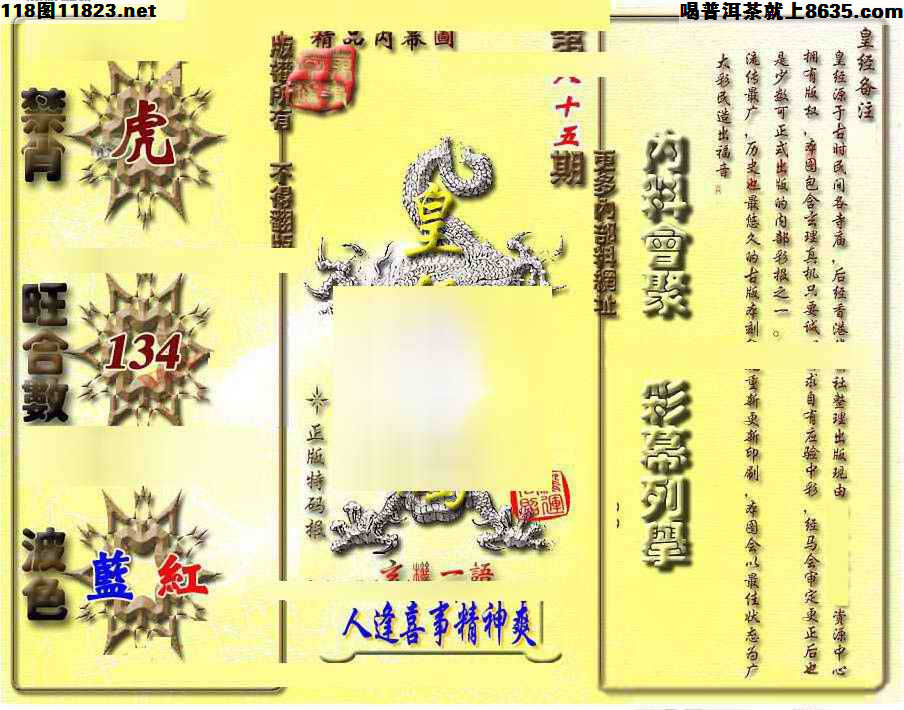 118图11823.net
喝普洱茶就上8635.com
禁肖
虎
旺合數
134
波色
藍 紅
版權所有 不得翻版
精品內幕圖
八十五期
皇
正版特码报
玄機一語
人逢喜事精神爽
更多內部料網址
內料會聚
彩幕列舉
皇经备注
皇经源于古时民间各寺庙，后经香港
社整理出版现由
资源中心
拥有版权，本图包含玄理真机只要诚
求自有应验中彩，经马会审定更正后也
是少数可正式出版的内部彩报之一。
流传最广，历史也最悠久的古版本刻
重新更新印刷，本图会以最佳状态为广
大彩民造出福音